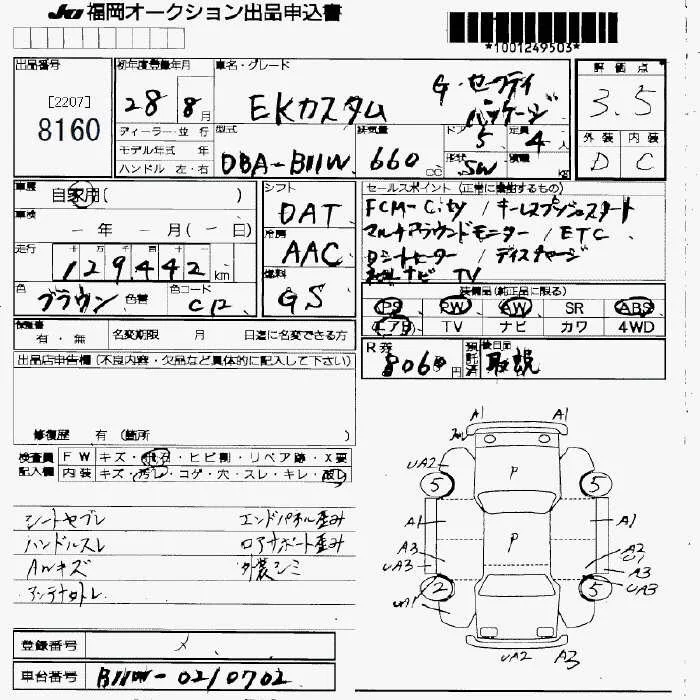 JU 福岡オークション出品申込書
*1001249503*
出品番号
[2207]
8160
初年度登録年月
28 8月
車名・グレード
EKカスタム
G・セーフティ
パッケージ
評価点
3.5
外装 内装
D C
ディーラー・並行
モデル年式 年
ハンドル 左・右
型式
DBA-B11W
排気量
660 cc
ドア
5
形状
SW
定員
4人
積載
kg
車歴
自家用( )
車検
- 年 - 月( - 日)
走行
129,442 km
色
ブラウン 色替
色コード
C12
シフト
DAT
冷房
AAC
燃料
GS
セールスポイント (正常に機能するもの)
FCM-City / キーレスプッシュスタート
マルチアラウンドモニター / ETC
Dシートヒーター / ディスチャージ
社外ナビ TV
装備品(純正品に限る)
PS PW AW SR ABS
エアB TV ナビ カワ 4WD
検査書
有・無
名変期限 月 日迄に名変できる方
R券
8060円
預託済
後日品
取説
出品店申告欄(不良内容・欠品など具体的に記入して下さい)
修復歴 有 (箇所 )
検査員
記入欄
FW キズ・飛石・ヒビ割・リペア跡・X要
内装 キズ・汚レ・コゲ・穴・スレ・キレ・破レ
シートヤブレ
ハンドルスレ
AWキズ
アンテナトレ
エンドパネル歪み
ロアサポート歪み
外装シミ
登録番号
メ
車台番号
B11W-0210702
A1 A1
UA2
5 5
P
A1 A1
P
A3 A2
UA3 U1
A3
UA3
2 5
UA1
UA2 A3